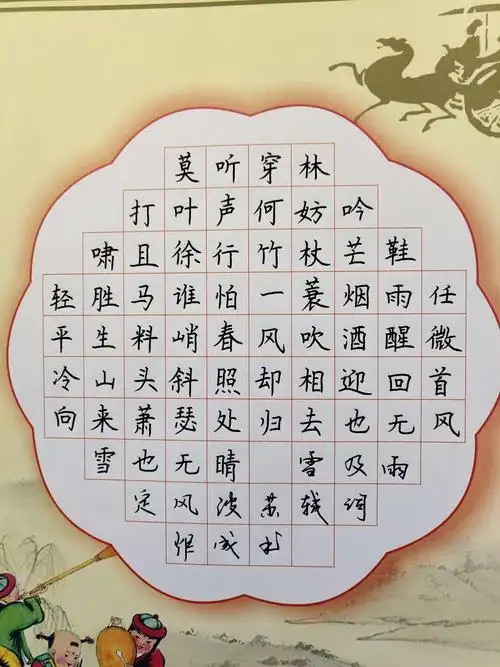 莫听穿林
打叶声何妨吟
啸且徐行竹杖芒鞋
轻胜马谁怕一蓑烟雨任
平生料峭春风吹酒醒微
冷山头斜照却相迎回首
向来萧瑟处归去也无风
雪也无晴 雪及雨
定风波苏轼词
作成书